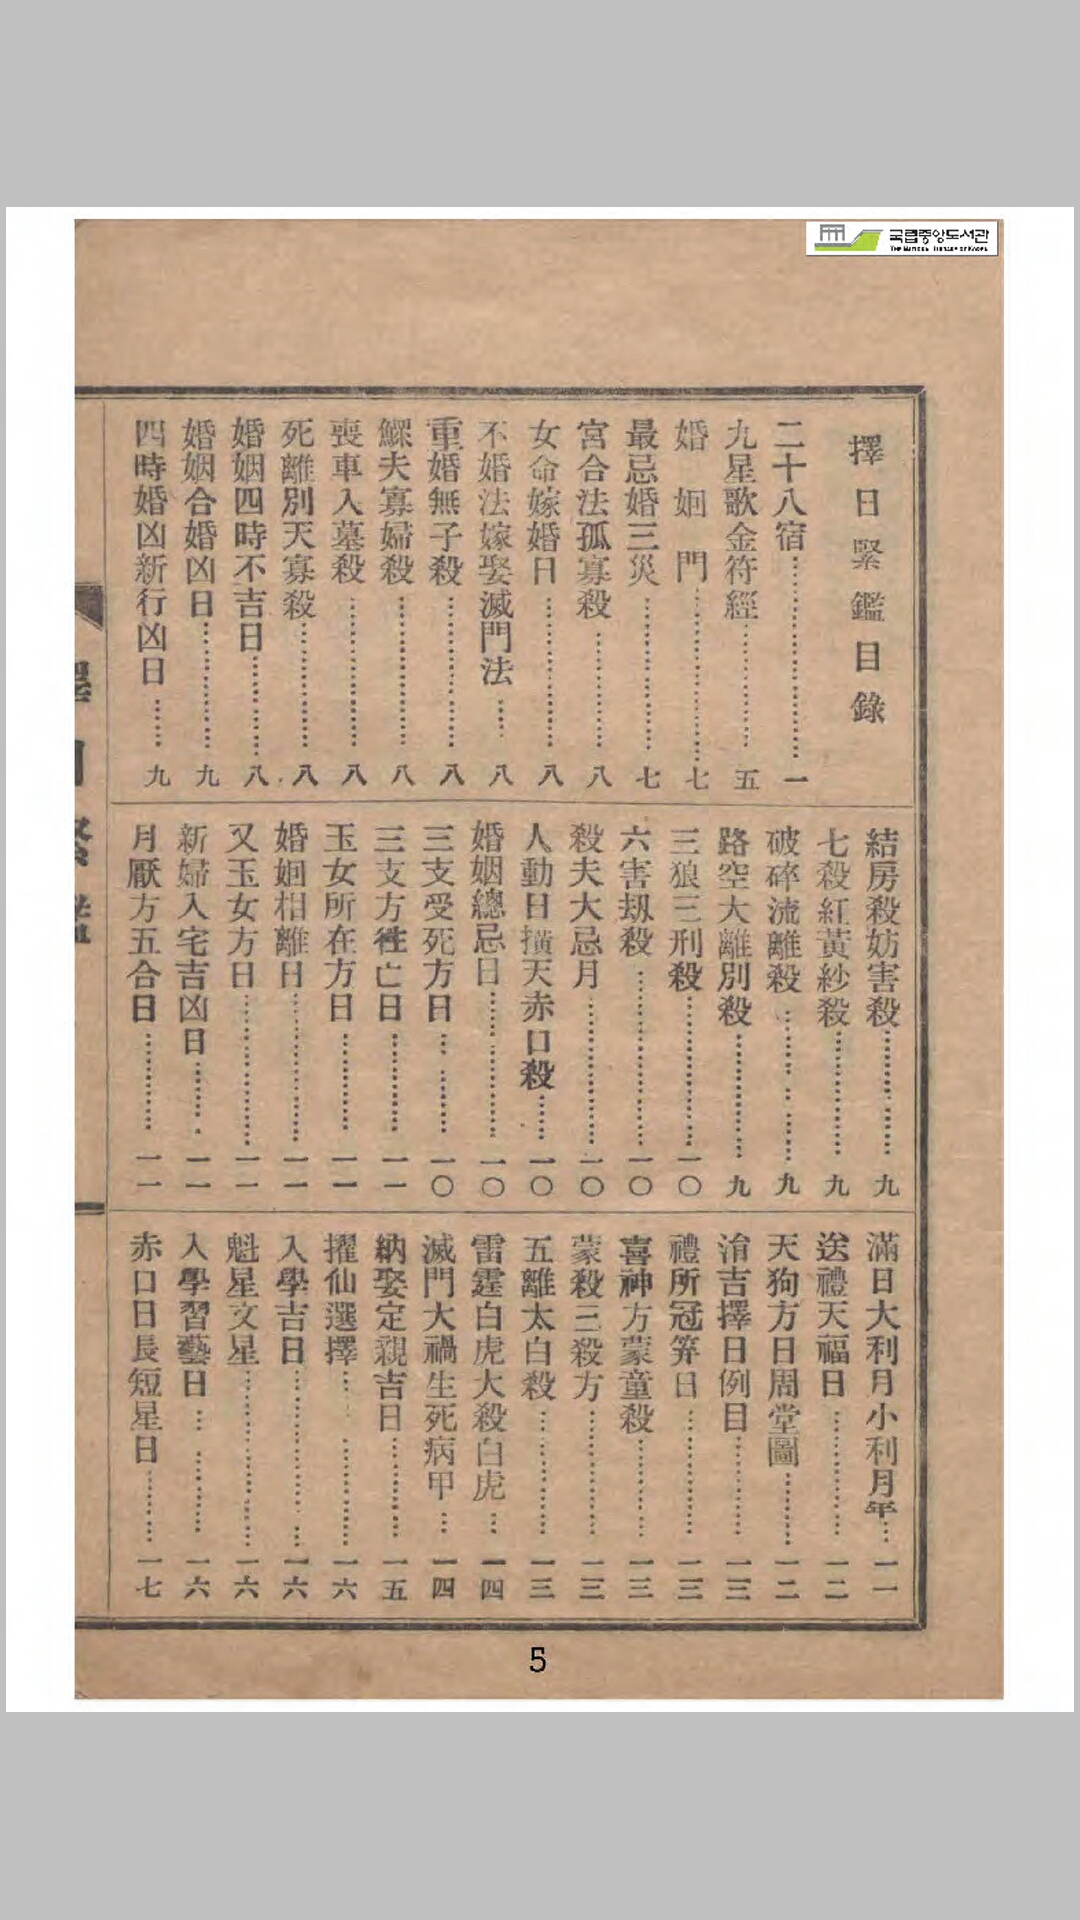 국립중앙도서관
THE NATIONAL LIBRARY OF KOREA
擇日緊鑑目錄
二十八宿…………一
九星歌金符經…………五
婚姻門…………七
最忌婚三災…………七
宮合法孤寡殺…………八
女命嫁婚日…………八
不婚法嫁娶滅門法……八
重婚無子殺…………八
鰥夫寡婦殺…………八
喪車入墓殺…………八
死離別天寡殺…………八
婚姻四時不吉日…………八
婚姻合婚凶日…………九
四時婚凶新行凶日……九
結房殺妨害殺…………九
七殺紅黃紗殺…………九
破碎流離殺…………九
路空大離別殺…………九
三狼三刑殺…………一〇
六害刼殺…………一〇
殺夫大忌月…………一〇
人動日撗天赤口殺……一〇
婚姻總忌日…………一〇
三支受死方日…………一〇
三支方徃亡日…………一一
玉女所在方日…………一一
婚姻相離日…………一一
又玉女方日…………一一
新婦入宅吉凶日……一一
月厭方五合日…………一一
滿日大利月小利月年…一一
送禮天福日…………一二
天狗方日周堂圖……一二
涓吉擇日例目…………一三
禮所冠筓日…………一三
喜神方蒙童殺…………一三
蒙殺三殺方…………一三
五離太白殺…………一三
雷霆白虎大殺白虎…一四
滅門大禍生死病甲…一四
納娶定親吉日…………一五
擢仙選擇…………一六
入學吉日…………一六
魁星文星…………一六
入學習藝日…………一六
赤口日長短星日……一七
5